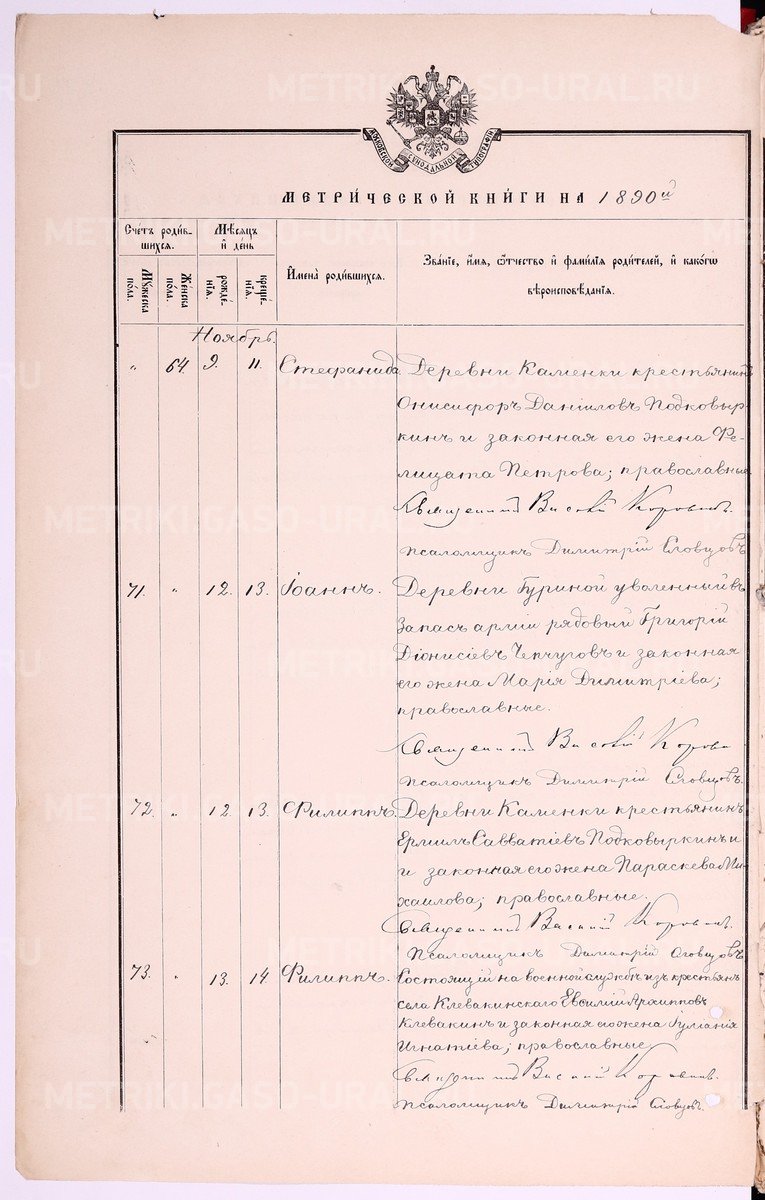 METRIKI.GASO-URAL.RU
МОСКОВСКОЙ СѴНОДАЛЬНОЙ ТИПОГРАФІИ
МЕТРИ́ЧЕСКОЙ КНИ́ГИ НА 1890й
Сче́тъ роди́в-
шихся.
Мꙋ́жеска по́ла.
Же́нска по́ла.
Мѣ́сяцъ
и҆ день
рожде́-
нїѧ.
креще́-
нїѧ.
И҆мена̀ роди́вшихся.
Зва́нїе, и҆́мѧ, ѻ҆́тчество и҆ фами́лїѧ роди́телей, и҆ како́гѡ
вѣроисповѣ́данїѧ.
Ноябрь.
" 64. 9. 11. Стефанида Деревни Каменки крестьянинъ
Онисифоръ Даніиловъ Подковыр-
кинъ и законная его жена Фе-
лицата Петрова; православные
Священникъ Василій Коровинъ.
псаломщикъ Димитрій Словцовъ
71. " 12. 13. Іоаннъ. Деревни Гуриной уволенный въ
запасъ арміи рядовый Григорій
Діонисіевъ Чепчуговъ и законная
его жена Марія Димитріева;
православные.
Священникъ Василій Корови
псаломщикъ Димитрій Словцовъ.
72. " 12 13. Филиппъ. Деревни Каменки крестьянинъ
Ермилъ Савватіевъ Подковыркинъ и
и законная его жена Параскева Ми-
хаилова; православные.
Священникъ Василій Коровинъ.
Псаломщикъ Димитрій Словцовъ
73. " 13. 14 Филиппъ. Состоящій на военной службѣ изъ крестьянъ
села Клевакинскаго Евсилій Архипповъ
Клевакинъ и законная его жена Іуліанія
Игнатіева; православные.
Священникъ Василій Коровинъ.
псаломщикъ Димитрій Словцовъ.